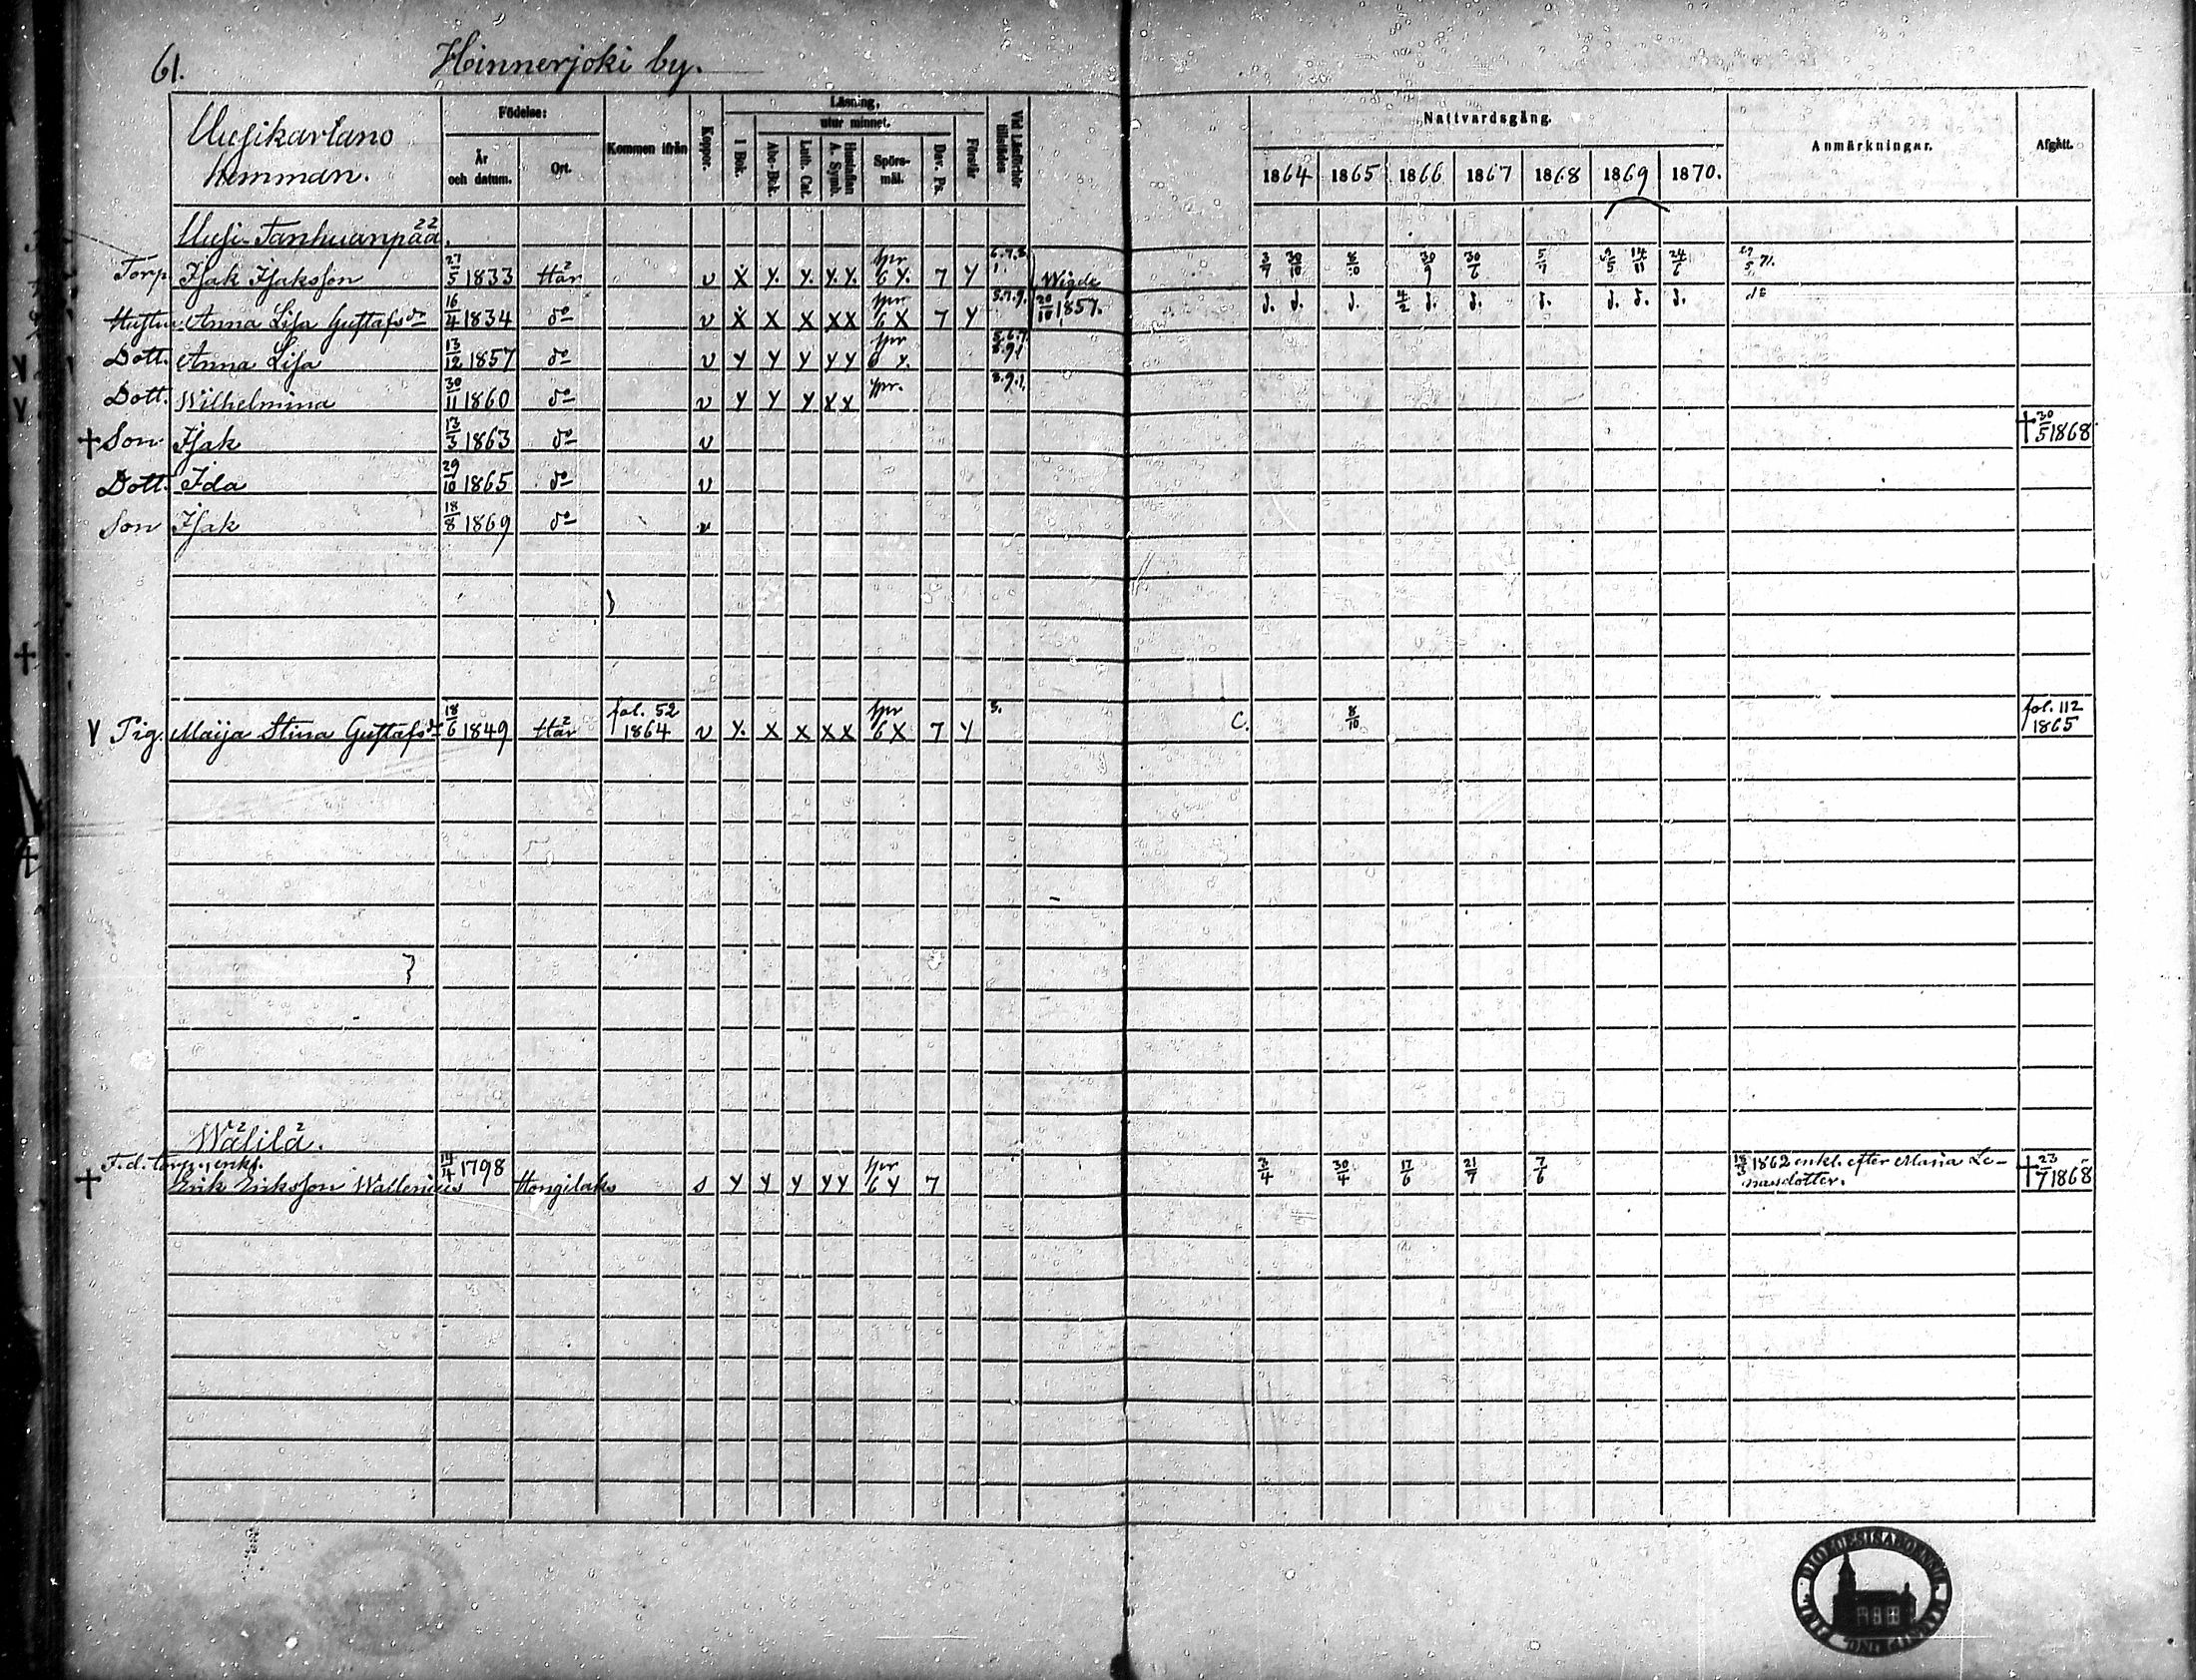 61. Hinnerjoki by.
Uusikartano
Hemman.
Födelse:
År och datum.
Ort.
Kommen ifrån
Koppor.
Läsning,
utur minnet.
I Bok.
Abc-Bok.
Luth. Cat.
Hustaflan A. Symb.
Spörs-mål.
Dav. Ps.
Förstår
Vid Läsförhör tillstädes
Nattvardsgång.
1864 1865 1866 1867 1868 1869 1870.
Anmärkningar.
Afgått.
Uusi-Tanhuanpää.
Torp. Isak Isaksson 27/5 1833 Här v X Y. Y. Y. Y. spr 6 Y. 7 Y 6.7.8. 1. Wigde 3/7 30/10 8/10 30/9 30/6 5/7 14/11 24/6 71.
Hustru Anna Lisa Gustafsdr 16/4 1834 do v X X X X X spr 6 X 7 Y 20/10 1857. d. d. d. 4/2 d. d. d. d. d. d. do
Dott. Anna Lisa 13/12 1857 do v Y Y Y Y Y spr Y. 5.6.7. 8.9.1
Dott. Wilhelmina 30/11 1860 do v Y Y Y X X spr. 8.9.1.
† Son Isak 13/3 1863 do v † 30/5 1868
Dott. Ida 29/10 1865 do v
Son Isak 18/8 1869 do v
V Pig. Maija Stina Gustafsdr 18/6 1849 Här fol. 52 1864 v Y. X X X X spr 6 X 7 Y 5. C. 8/10 fol. 112 1865
Wälilä.
F.d. torp., enkl.
† Erik Eriksson Wallenius 14/4 1798 Hongilaks s Y Y Y Y Y spr 6 Y 7 3/4 30/4 17/6 21/7 7/6 18/3 1862 enkl. efter Maria Le-
nasdotter. † 23/7 1868